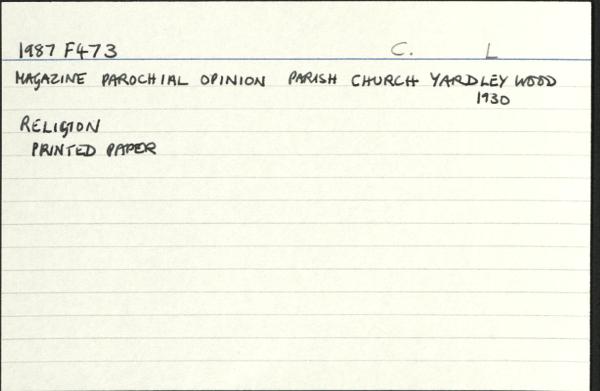 1987 F473 C. L
MAGAZINE PAROCHIAL OPINION PARISH CHURCH YARDLEY WOOD
1930
RELIGION
PRINTED PAPER